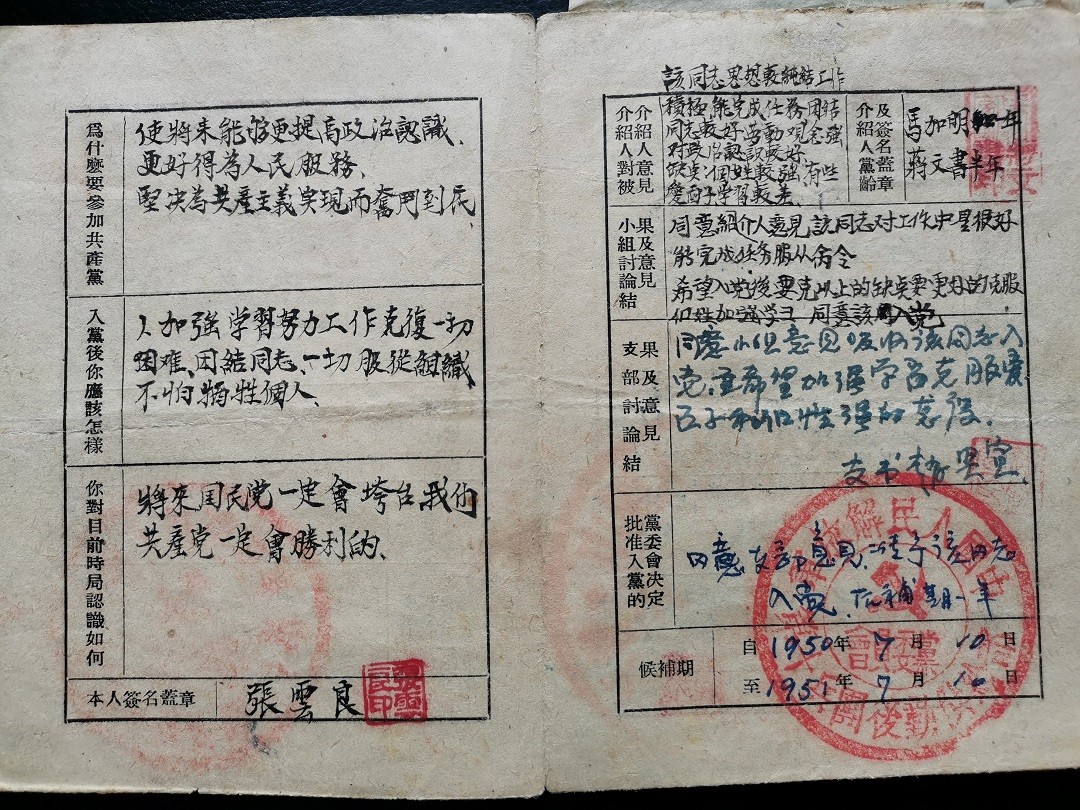 為什麼要參加共產黨
使將來能够更提高政治認識、
更好得為人民服務、
堅决為共產主義实現而奮鬥到底
入黨後你應該怎樣
加強学習努力工作克復一切
困难、团結同志、一切服從組織
不怕犧牲個人、
你對目前時局認識如何
將來国民党一定會垮台我们
共產党一定會勝利的、
本人簽名蓋章
張雲良
該同志思想較純結工作
介紹人對被介紹人意見
積極、能完成任務、团結
同志較好、劳動观念強
对政治認識較好、
缺点：個性較強、有些
愛面子学習較差、
介紹人黨齡及簽名蓋章
馬加明 一年
蔣文書半年
小組討論結果及意見
同意紹介人意見該同志对工作中是很好
能完成任务服从命令
希望入党後要克以上的缺点要更好的克服
加強学习 同意該 入党
支部討論結果及意見
同意小组意見吸收該同志入
党、並希望加強学習克服愛
面子和個性強的
支书
黨委會決定批准入黨的
同意支部意見、批准該同志
入党、候補期一年
候補期
自1950年7月10日
至1951年7月10日